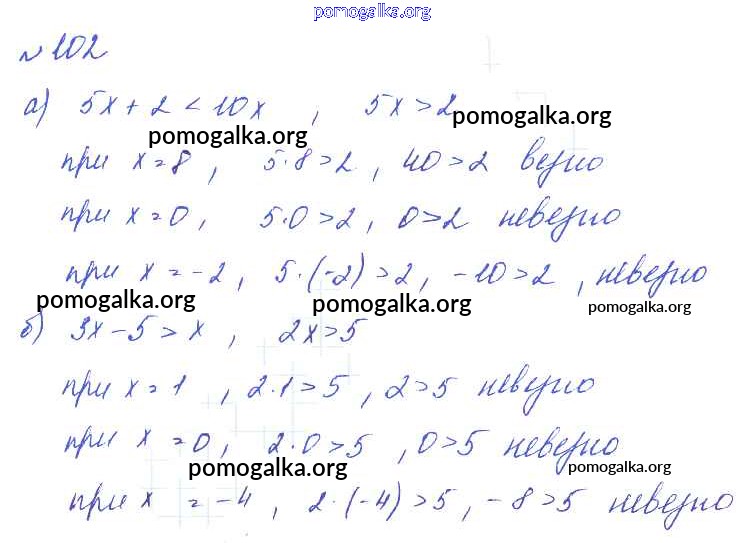 pomogalka.org
№102
а) 5x + 2 < 10x , 5x > 2
pomogalka.org
pomogalka.org
при x = 8 , 5·8 > 2 , 40 > 2 верно
при x = 0 , 5·0 > 2 , 0 > 2 неверно
при x = -2 , 5·(-2) > 2 , -10 > 2 , неверно
pomogalka.org pomogalka.org pomogalka.org
б) 3x - 5 > x , 2x > 5
при x = 1 , 2·1 > 5 , 2 > 5 неверно
при x = 0 , 2·0 > 5 , 0 > 5 неверно
pomogalka.org pomogalka.org
при x = -4 , 2·(-4) > 5 , -8 > 5 неверно